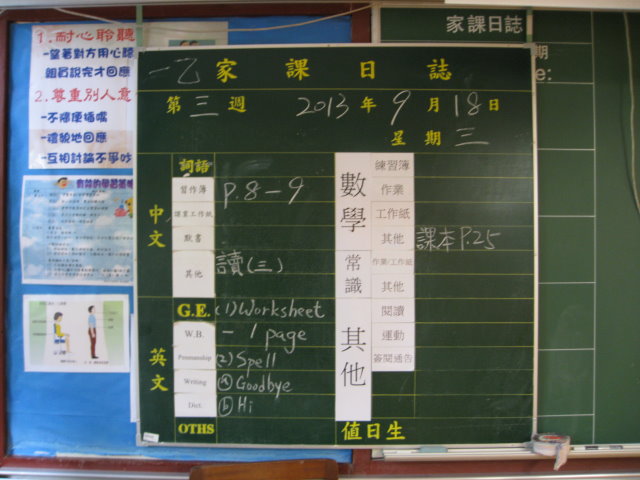 1.耐心聆聽
-望著對方用心聽
組員說完才回應
2.尊重別人意
-不隨便插嘴
-禮貌地回應
-互相討論不爭吵
有效的學習策略
家課日誌
期
e:
一乙家課日誌
第三週 2013年9月18日
星期三
中文
詞語
習作簿 P.8-9
課堂工作紙
默書
其他 讀(三)
英文
G.E. (1)Worksheet
W.B. - 1 page
Penmanship (2)Spell
Writing ⓐGoodbye
Dict. ⓑHi
OTHS
數學
練習簿
作業
工作紙
其他 課本P.25
常識
作業/工作紙
其他
其他
閱讀
運動
簽閱通告
值日生